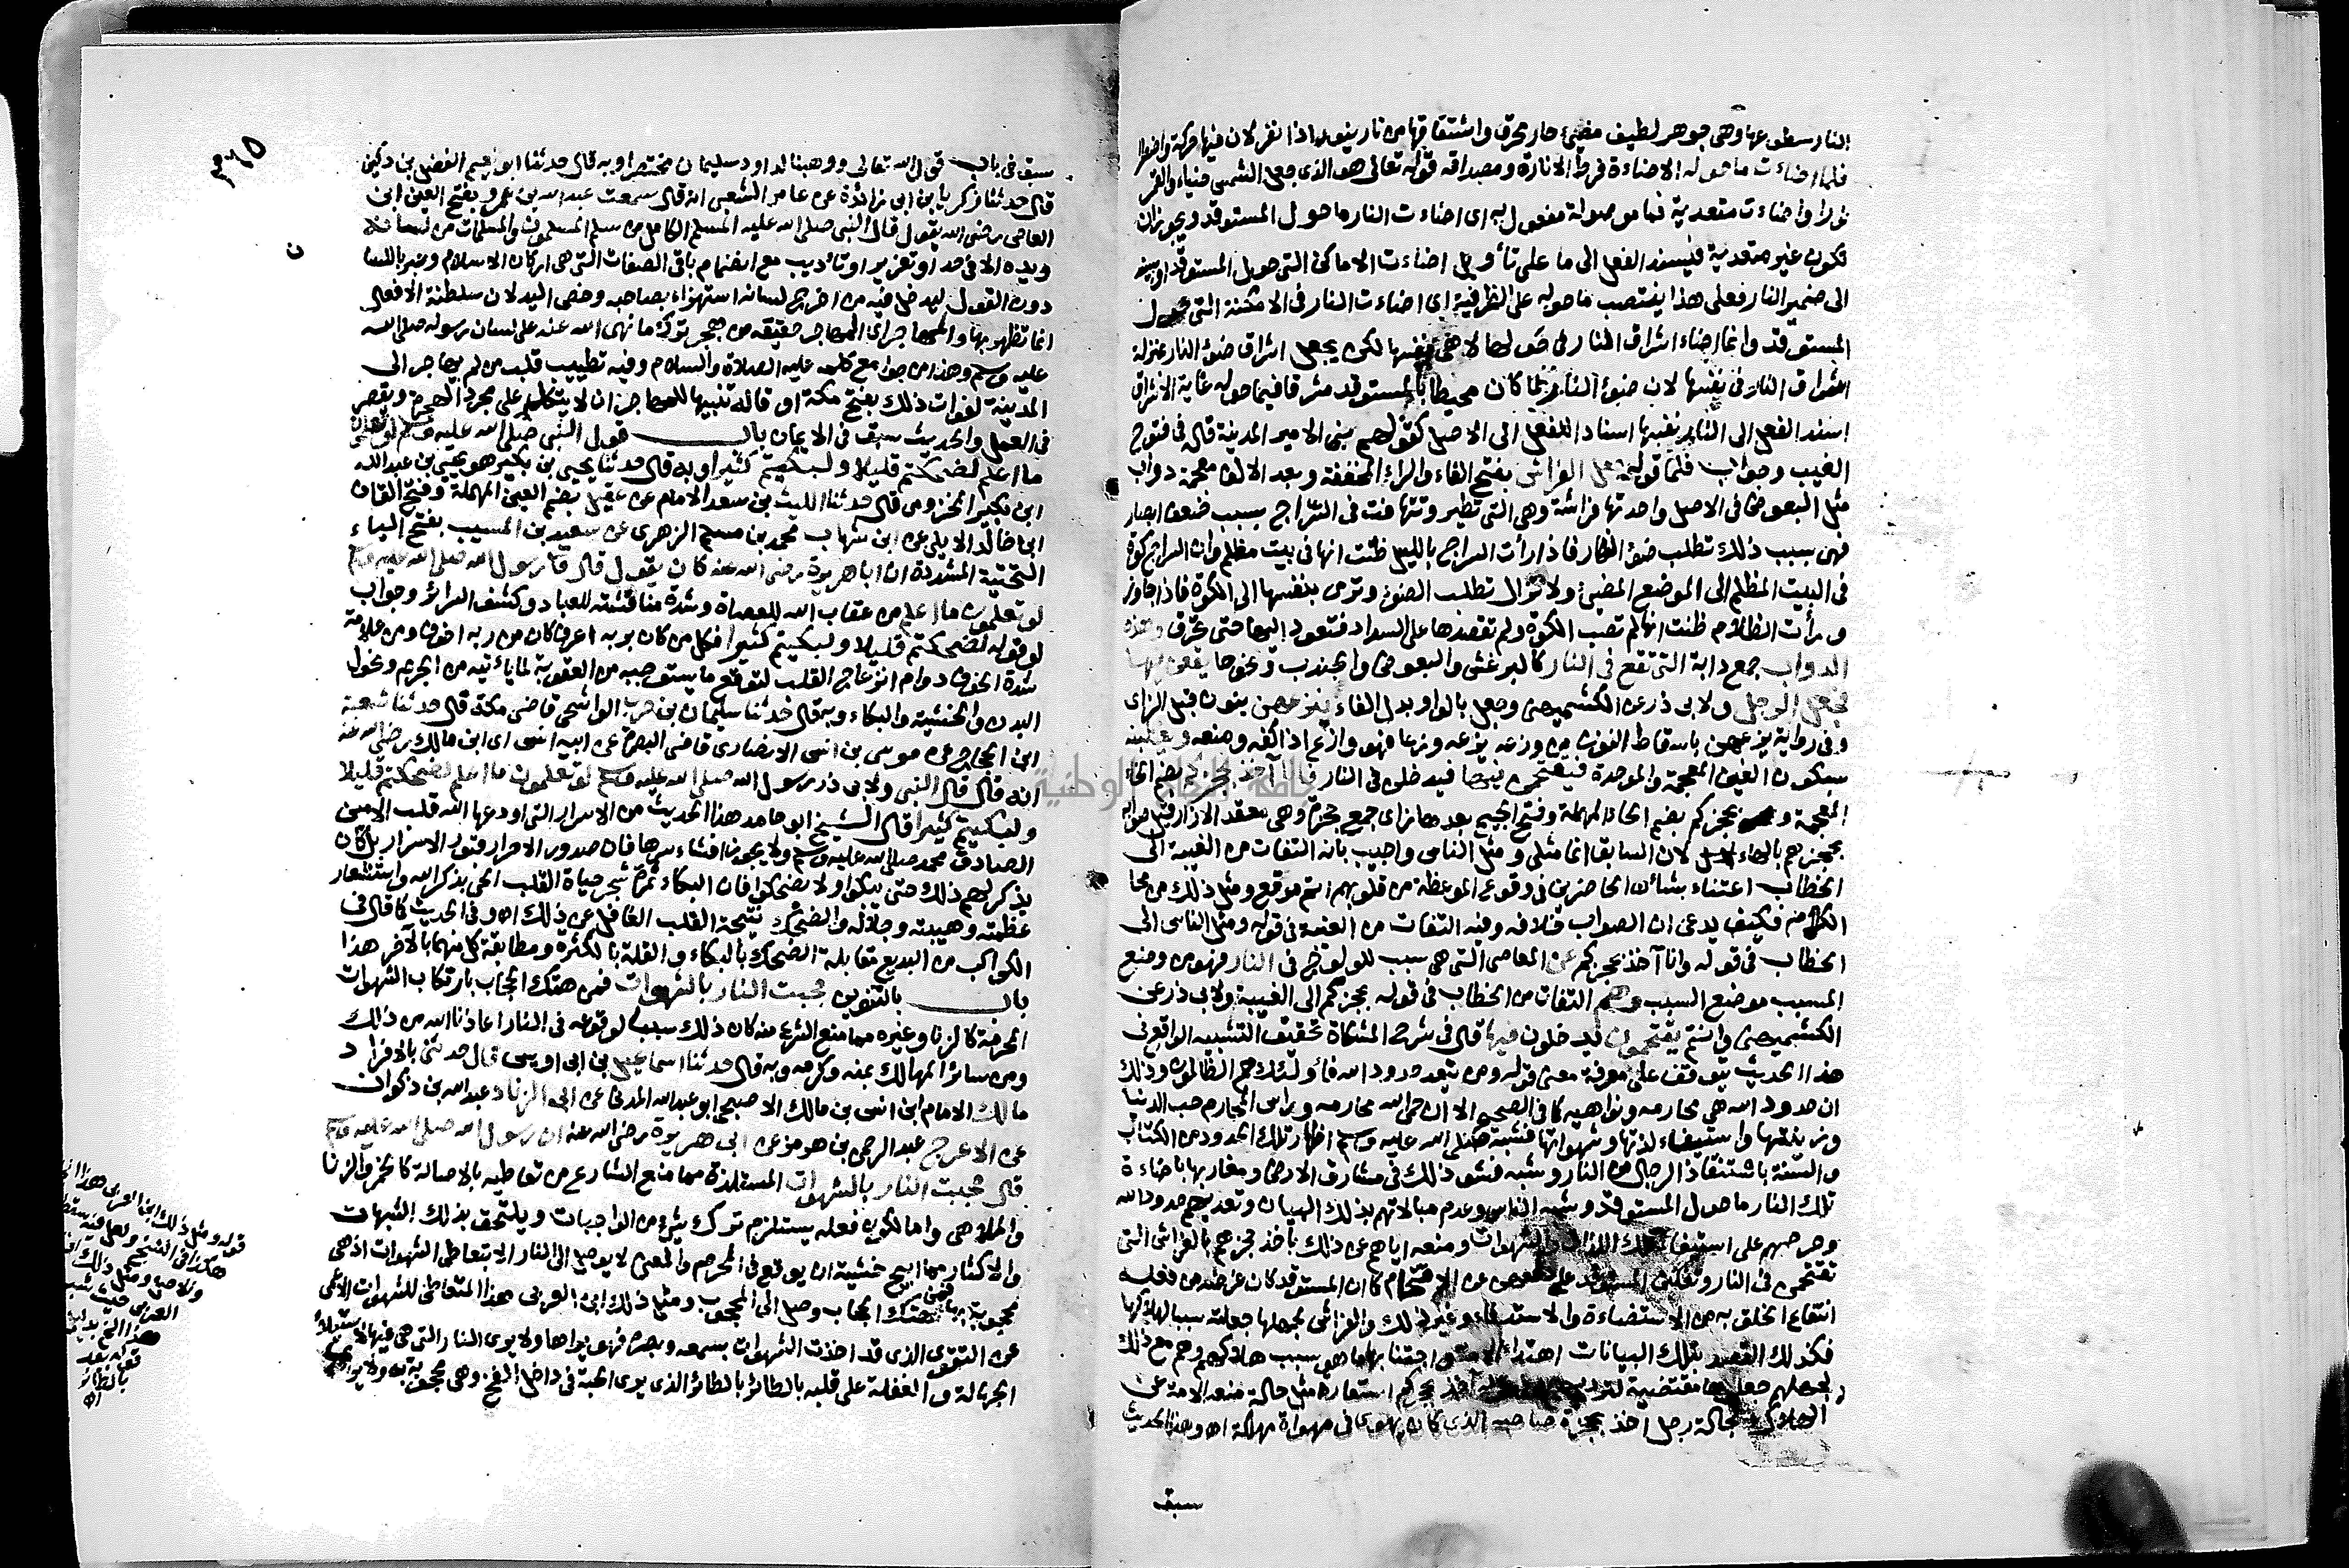 النار سطوعها وهى جوهر لطيف مضيئ حار محرق واشتقاقها من نار ينور اذا نفر لان فيها حركة واضطرا
فلما اضاءت ما حوله الاضاءة فرط الانارة ومصداقه قوله تعالى هو الذى جعل الشمس ضياء والقمر
نورا واضاءت متعدية فما موصولة مفعول به اى اضاءت النار ما حول المستوقد ويجوز ان
تكون غير متعدية فيسند الفعل الى ما على تأويل اضاءت الاماكن التى حول المستوقد او يسند
الى ضمير النار فعلى هذا ينتصب ما حوله على الظرفية اى اضاءت النار فى الامكنة التى حول
المستوقد وانما اضاء اشراق النار فى حولها لا هى بنفسها لكن يجعل اشراق ضوء النار بمنزلة
اشراق النار فى نفسها لان ضوء النار لما كان محيطا بالمستوقد مشرقا فيما حوله غاية الاشراق
اسند الفعل الى النار بنفسها اسنادا للفعل الى الاصل كقولهم بنى الامير المدينة قاله فى فتوح
الغيب وجواب فلما قوله جعل الفراش بفتح الفاء والراء المخففة وبعد الالف معجمة دواب
مثل البعوض فى الاصل واحدتها فراشة وهى التى تطير وتتهافت فى السّراج بسبب ضعف ابصار
فهى بسبب ذلك تطلب ضوء النهار فاذا رأت السراج بالليل ظنت انها فى بيت مظلم وان السراج كوة
فى البيت المظلم الى الموضع المضيئ ولا تزال تطلب الضوء وترمى بنفسها الى الكوة فاذا جاوز
ورأت الظلام ظنت انها لم تصب الكوة ولم تقصدها على السداد فتعود اليها حتى تحترق وهذه
الدواب جمع دابة التى تقع فى النار كالبرغش والبعوض والجندب ونحوها يقعن فيها
فجعل الرجل ولابى ذر عن الكشميهنى وجعل بالواو بدل الفاء ينزعهن بنون قبل الزاى
وفى رواية يزعهن باسقاط النون من وزعه يزعه وزعا فهو وازع اذا كفه ومنعه ويغلبنه
بسكون الغين المعجمة والموحدة فيقتحمن فيها فيدخلن فى النار فانا آخذ بحجزكم بضم الخاء
المعجمة وبحجزكم بضم الحاء المهملة وفتح الجيم بعدها زاى جمع حجزة وهى معقد الازار قيل صوابه
بحجزهم بالهاء لان السابق انما مثلى ومثل الناس واجيب بانه التفات من الغيبة الى
الخطاب اعتناء بشأن الحاضرين فى وقوع الموعظة من قلوبهم اتم موقع ومثل ذلك من محا
الكلام فكيف يدعى ان الصواب خلافه وفيه التفات من الغيبة فى قوله ومثل الناس الى
الخطاب فى قوله وانا آخذ بحجزكم عن المعاصى التى هى سبب للولوج فى النار فهو من وضع
المسبب موضع السبب وهم التفات من الخطاب فى قوله بحجزكم الى الغيبة ولابى ذر عن
الكشميهنى وانتم يقتحمون يدخلون فيها قال فى شرح المشكاة تحقيق التشبيه الواقع فى
هذا الحديث يتوقف على معرفة معنى قوله ومن يتعد حدود الله فأولئك هم الظالمون وذلك
ان حدود الله هى محارمه ونواهيه كما فى الصحيح الا ان حمى الله محارمه ورأس المحارم حب الدنيا
وزينتها واستيفاء لذتها وشهواتها فشبه صلى الله عليه وسلم اظهار تلك الحدود من الكتاب
والسنة باستنقاذ الرجال من النار وشبه فشو ذلك فى مشارق الارض ومغاربها باضاءة
تلك النار ما حول المستوقد وشبه الناس وعدم مبالاتهم بذلك البيان وتعديهم حدود الله
وحرصهم على استيفاء تلك اللذات والشهوات ومنعه اياهم عن ذلك بأخذ حجزهم بالفراش التى
تقتحمن فى النار وتغلبن المستوقد على دفعهن عن الاقتحام كما ان المستوقد كان غرضه من فعله
انتفاع الخلق به من الاستضاءة والاستدفاء وغير ذلك والفراش بجهلها جعلته سببا لهلاكها
فكذلك القصد بتلك البيانات اهتداء الامة واجتنابها ما هو سبب هلاكهم وهم مع ذلك
لجهلهم جعلوها مقتضية لترديهم وفى قوله آخذ بحجزكم استعارة مثل حالة منعه الامة عن
الهلاك بحالة رجل اخذ بحجزة صاحبه الذى كاد يهوى فى مهواة مهلكة اه وهذا الحديث
سبق
٣٦٥
سبق فى باب قول الله تعالى ووهبنا لداود سليمان مختصرا وبه قال حدثنا ابو نعيم الفضل بن دكين
قال حدثنا زكريا بن ابى زائدة عن عامر الشعبى انه قال سمعت عبد الله بن عمرو بفتح العين ابن
العاصى رضى الله يقول قال النبى صلى الله عليه المسلم الكامل من سلم المسلمون والمسلمات من لسانه
ويده الا فى حد او تعزير او تأديب مع انضمام باقى الصفات التى هى اركان الاسلام وعبر باللسا
ن
دون القول ليدخل فيه من اخرج لسانه استهزاء بصاحبه وخص اليد لان سلطنة الافعال
انما تظهر بها والمهاجر اى المهاجر حقيقة من هجر ترك ما نهى الله عنه على لسان رسوله صلى الله
عليه وسلم وهذا من جوامع كلمه عليه الصلاة والسلام وفيه تطييب قلب من لم يهاجر الى
المدينة لفوات ذلك بفتح مكة او قاله تنبيها للمهاجر ان لا يتكل على مجرد الهجرة ويقصر
فى العمل والحديث سبق فى الايمان باب قول النبى صلى الله عليه وسلم لو تعلمون
ما اعلم لضحكتم قليلا ولبكيتم كثيرا وبه قال حدثنا يحيى بن بكير هو يحيى بن عبد الله
ابن بكير المخزومى قال حدثنا الليث بن سعد الامام عن عقيل بضم العين المهملة وفتح القاف
ابن خالد الايلى عن ابن شهاب محمد بن مسلم الزهرى عن سعيد بن المسيب بفتح الياء
التحتية المشددة ان ابا هريرة رضى الله عنه كان يقول قال رسول الله صلى الله عليه وسلم
لو تعلمون ما اعلم من عقاب الله للعصاة وشدة مناقشته للعباد وكشف السرائر وجواب
لو قوله لضحكتم قليلا ولبكيتم كثيرا فكل من كان بربه اعرف كان من ربه اخوف ومن علامة
شدة الخوف دوام انزعاج القلب لتوقع ما يستوجبه من العقوبة لما يأتيه من الجرم ونحول
البدن والخشية والبكاء وبه قال حدثنا سليمان بن حرب الواشحى قاضى مكة قال حدثنا شعبة
ابن الحجاج عن موسى بن انس الانصارى قاضى البصرة عن ابيه انس اى ابن مالك رضى الله عنه
انه قال قال النبى ولابى ذر رسول الله صلى الله عليه وسلم لو تعلمون ما اعلم لضحكتم قليلا
ولبكيتم كثيرا قال الشيخ ابو حامد هذا الحديث من الاسرار التى اودعها الله قلب الامين
الصادق محمد صلى الله عليه وسلم ولا يجوز افشاء سرها فان صدور الاحرار قبور الاسرار بل كان
يذكر لهم ذلك حتى يبكوا ولا يضحكوا فان البكاء ثمرة شجر حياة القلب الحى بذكر الله واستشعار
عظمته وهيبته وجلاله والضحك نتيجة القلب الغافل عن ذلك اه وفى الحديث كما قال فى
الكواكب من البديع مقابلة الضحك بالبكاء والقلة بالكثرة ومطابقة كل منهما بالآخر هذا
باب بالتنوين حجبت النار بالشهوات فمن هتك الحجاب بارتكاب الشهوات
المحرمة كالزنا وغيره مما منع الشرع منه كان ذلك سببا لوقوعه فى النار اعاذنا الله من ذلك
ومن سائر المهالك بمنه وكرمه وبه قال حدثنا اسماعيل بن ابى اويس قال حدثنى بالافراد
مالك الامام ابن انس بن مالك الاصبحى ابو عبد الله المدنى عن ابى الزناد عبد الله بن ذكوان
عن الاعرج عبد الرحمن بن هرمز عن ابى هريرة رضى الله عنه ان رسول الله صلى الله عليه وسلم
قال حجبت النار بالشهوات المستلذة مما منع الشارع من تعاطيه بالاصالة كالخمر والزنا
والملاهى واما لكون فعله يستلزم ترك شيئ من الواجبات ويلتحق بذلك الشبهات
والاكثار مما ابيح خشية ان يوقع فى المحرم والمعنى لا يوصل الى النار الا بتعاطى الشهوات اذ هى
محجوبة بها فمن هتك الحجاب وصل الى المحجوب ومثل ذلك ابن العربى هذا المتعاطى للشهوات الاعمى
عن التقوى الذى قد اخذت الشهوات بسمعه وبصره فهو يراها ولا يرى النار التى هى فيها لاستيلاء
الجهالة والغفلة على قلبه بالطائر بالطائر الذى يرى الحبة فى داخل الفخ وهى محجوبة به ولا يرى
قوله ومثل ذلك ابن العربى هذا الخ
هكذا فى النسخ ولعل فيه سقط
والاصل ومثل ذلك ابن
العربى حيث شبه
هذا الخ بدليل
قوله بعد
بالطائر
اه
جامعة النجاح الوطنية